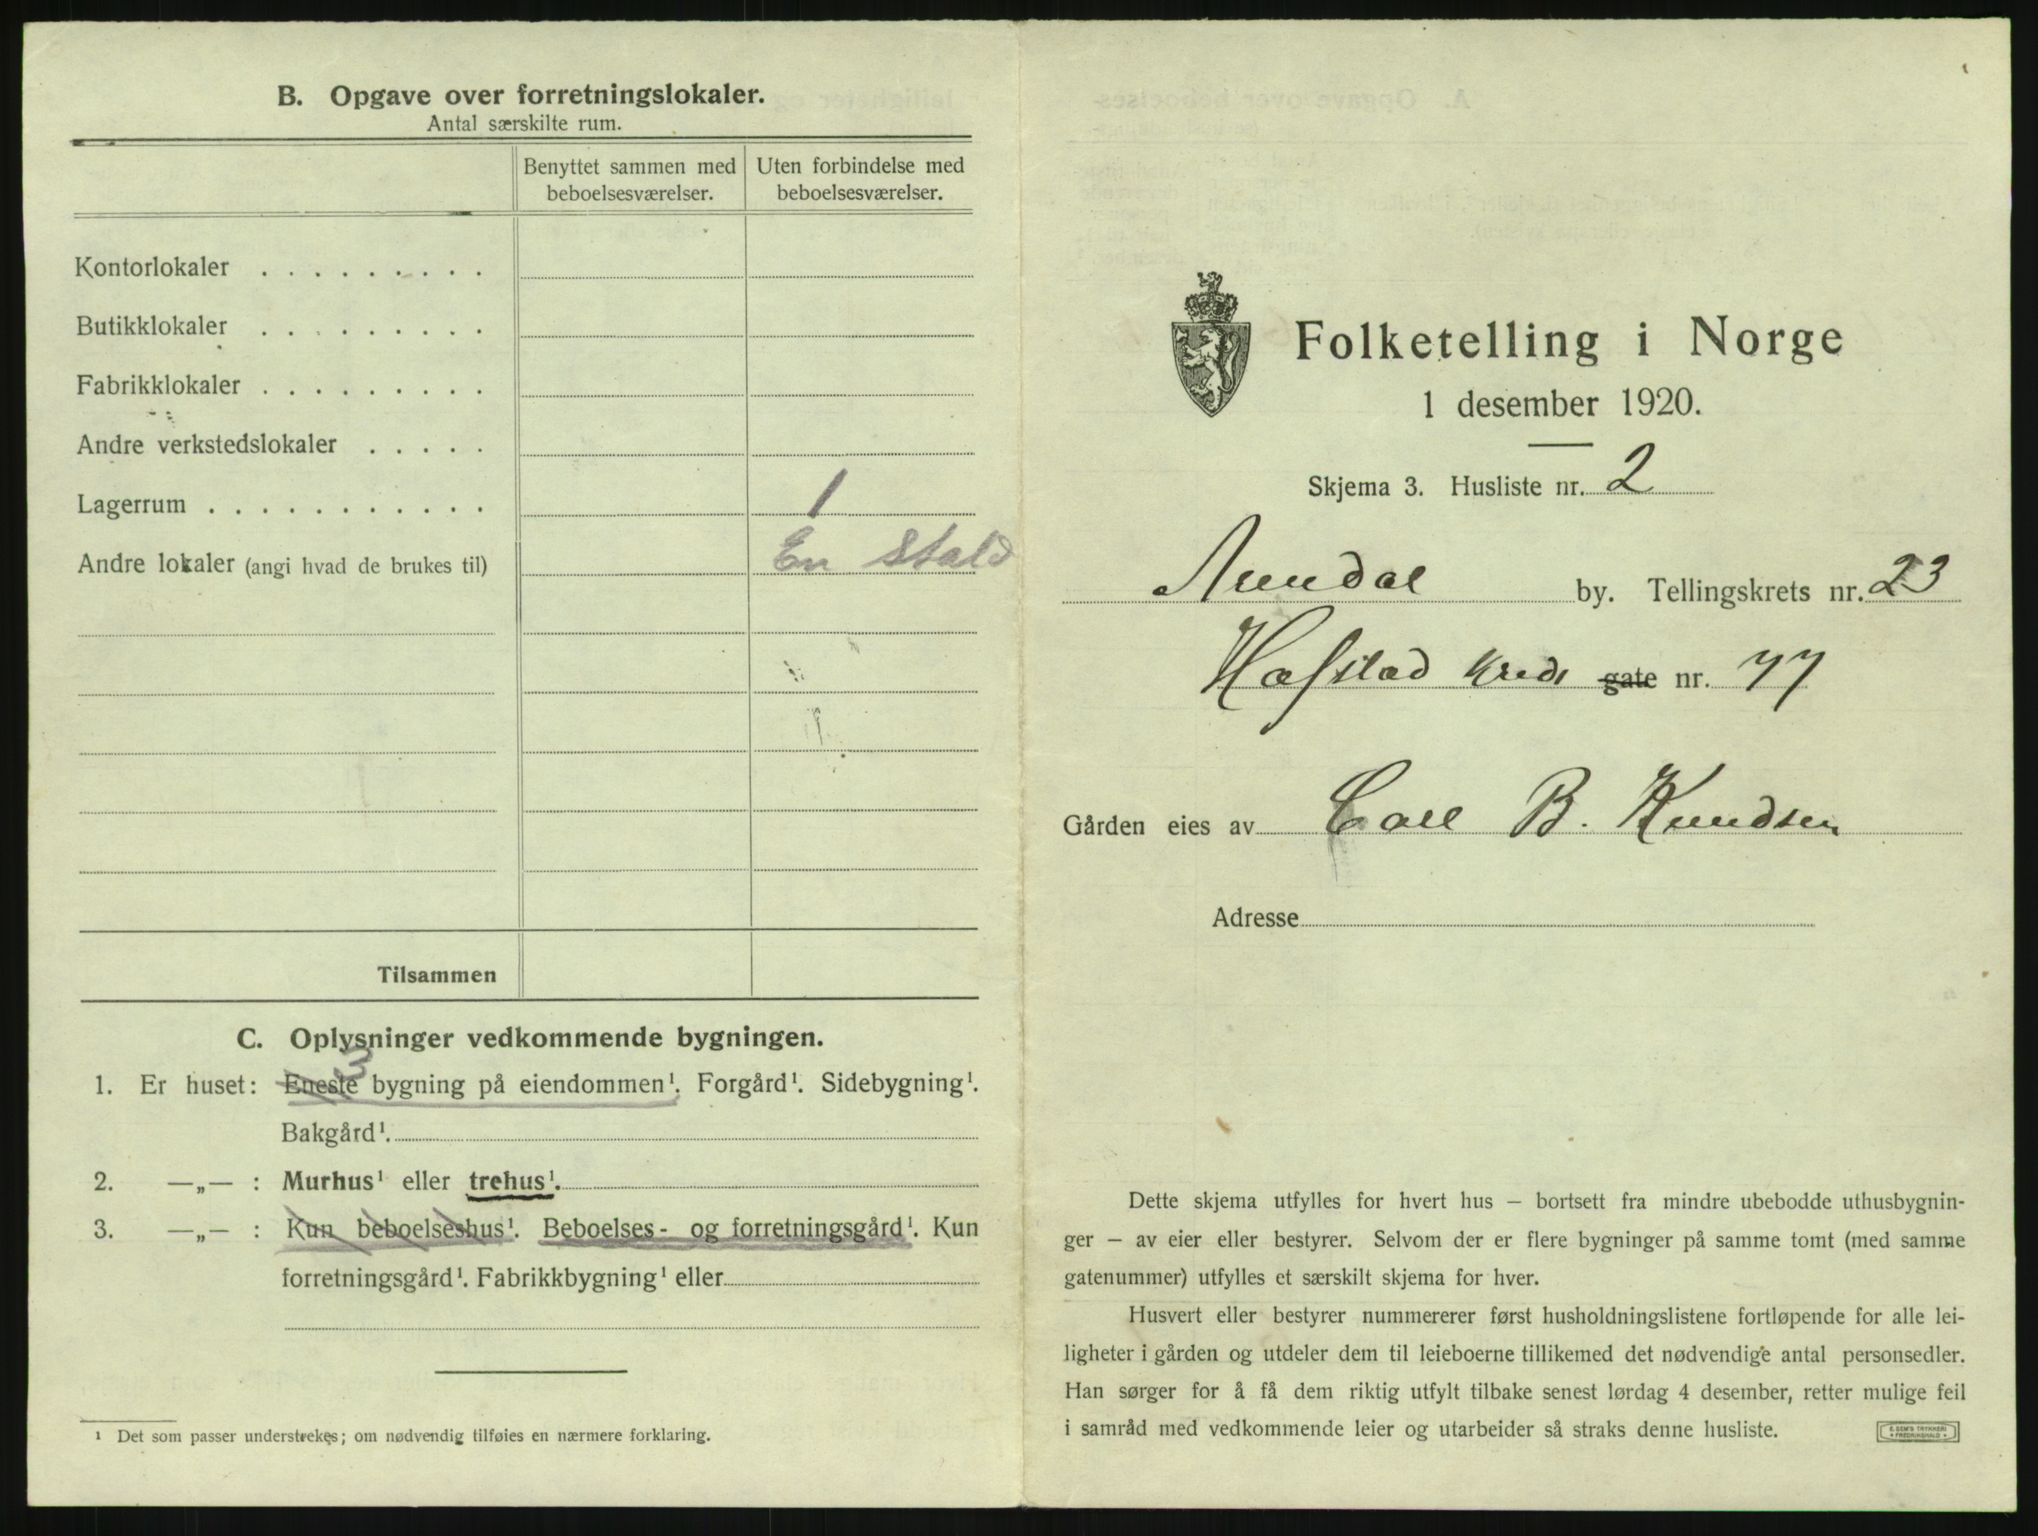 B. Opgave over forretningslokaler.
Antal særskilte rum.
Benyttet sammen med beboelsesværelser.
Uten forbindelse med beboelsesværelser.
Kontorlokaler . . . . . . . . .
Butikklokaler . . . . . . . . .
Fabrikklokaler . . . . . . . . .
Andre verkstedslokaler . . . . .
Lagerrum . . . . . . . . . . . . 1
Andre lokaler (angi hvad de brukes til) En Stald
Tilsammen
C. Oplysninger vedkommende bygningen.
1. Er huset: Eneste 3 bygning på eiendommen¹. Forgård¹. Sidebygning¹.
Bakgård¹.
2. —„— : Murhus¹ eller trehus¹.
3. —„— : Kun beboelseshus¹. Beboelses- og forretningsgård¹. Kun
forretningsgård¹. Fabrikkbygning¹ eller
¹ Det som passer understrekes; om nødvendig tilføies en nærmere forklaring.
Folketelling i Norge
1 desember 1920.
Skjema 3. Husliste nr. 2
Arendal by. Tellingskrets nr. 23
Hafstad kreds gate nr. 77
Gården eies av Carl B. Knudsen
Adresse
Dette skjema utfylles for hvert hus – bortsett fra mindre ubebodde uthusbygnin-
ger – av eier eller bestyrer. Selvom der er flere bygninger på samme tomt (med samme
gatenummer) utfylles et særskilt skjema for hver.
Husvert eller bestyrer nummererer først husholdningslistene fortløpende for alle lei-
ligheter i gården og utdeler dem til leieboerne tillikemed det nødvendige antal personsedler.
Han sørger for å få dem riktig utfylt tilbake senest lørdag 4 desember, retter mulige feil
i samråd med vedkommende leier og utarbeider så straks denne husliste.
E. SEM'S TRYKKERI
FREDRIKSHALD